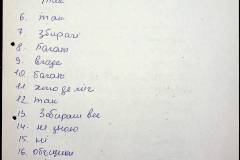 так
6. так
7. Збирачі
8. Багато
9. влада
10 багато
11 хто де міг
12 так
13. Забирали все
14. не знаю
15. ні
16.